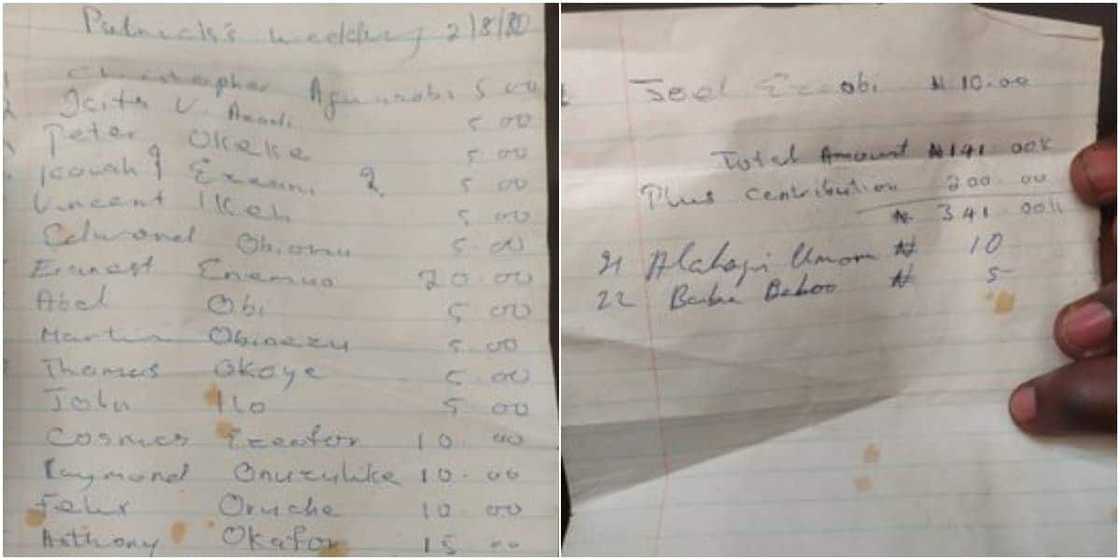 Patrick's wedding 2/8/80
Christopher 5 00
5 00
Peter Okeke 5.00
5 00
Vincent Ikeh 5 00
Edmond 5.00
Ernest Enemuo 20.00
Abel Obi 5 00
Martin Obinezu 5.00
Thomas Okoye 5.00
John Ilo 5 00
Cosmas Ezeafor 10.00
Raymond Onuzulike 10.00
Felix Oruche 10 00
Anthony Okafor 15 00
Joel Ezeobi ₦ 10.00
Total Amount ₦141.00k
Plus Contribution 200.00
₦ 341.00k
21 Alahaji ₦ 10
22 ₦ 5